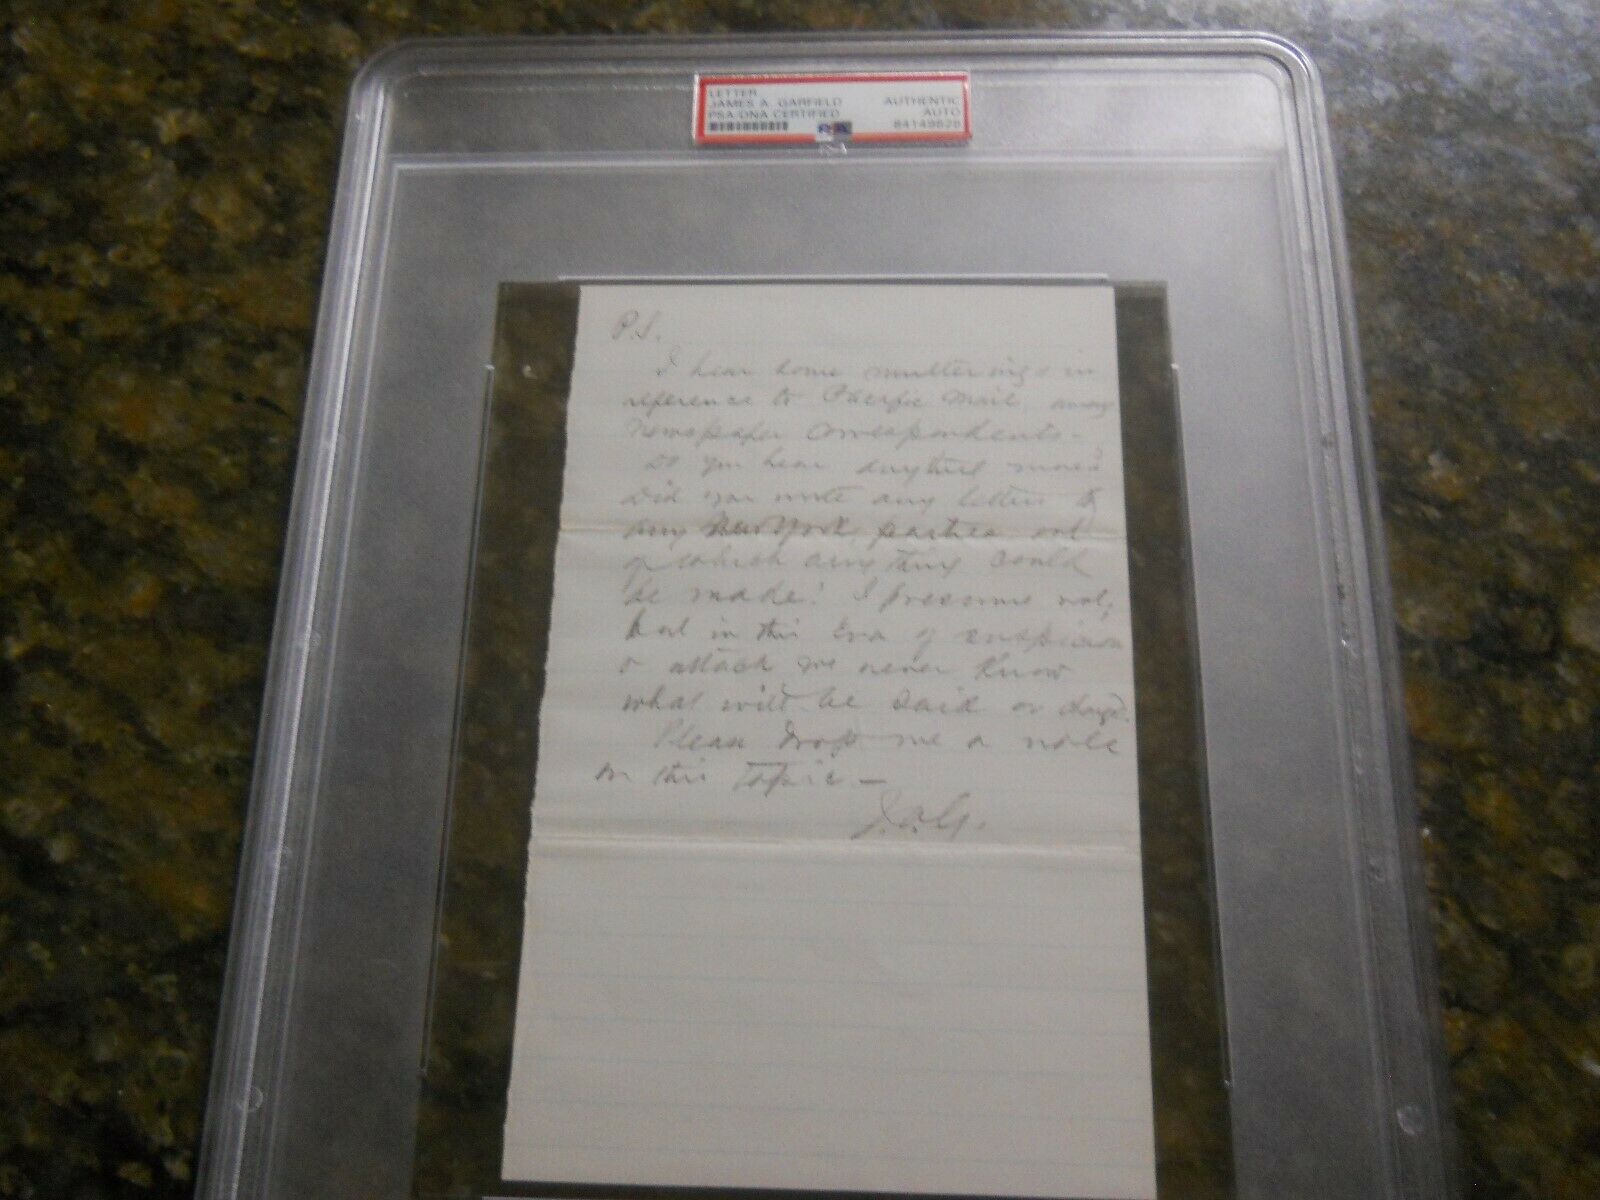 LETTER
JAMES A. GARFIELD AUTHENTIC
PSA/DNA CERTIFIED AUTO
84149828
P.S.
I hear some mutterings in
reference to Pacific Mail among
Newspaper Correspondents -
Do you hear anything more?
Did you write any letters to
any New York parties out
of which anything could
be made? I presume not,
but in this Era of suspicion
& attack we never know
what will be said or charged.
Please drop me a note
on this topic —
J.A.G.